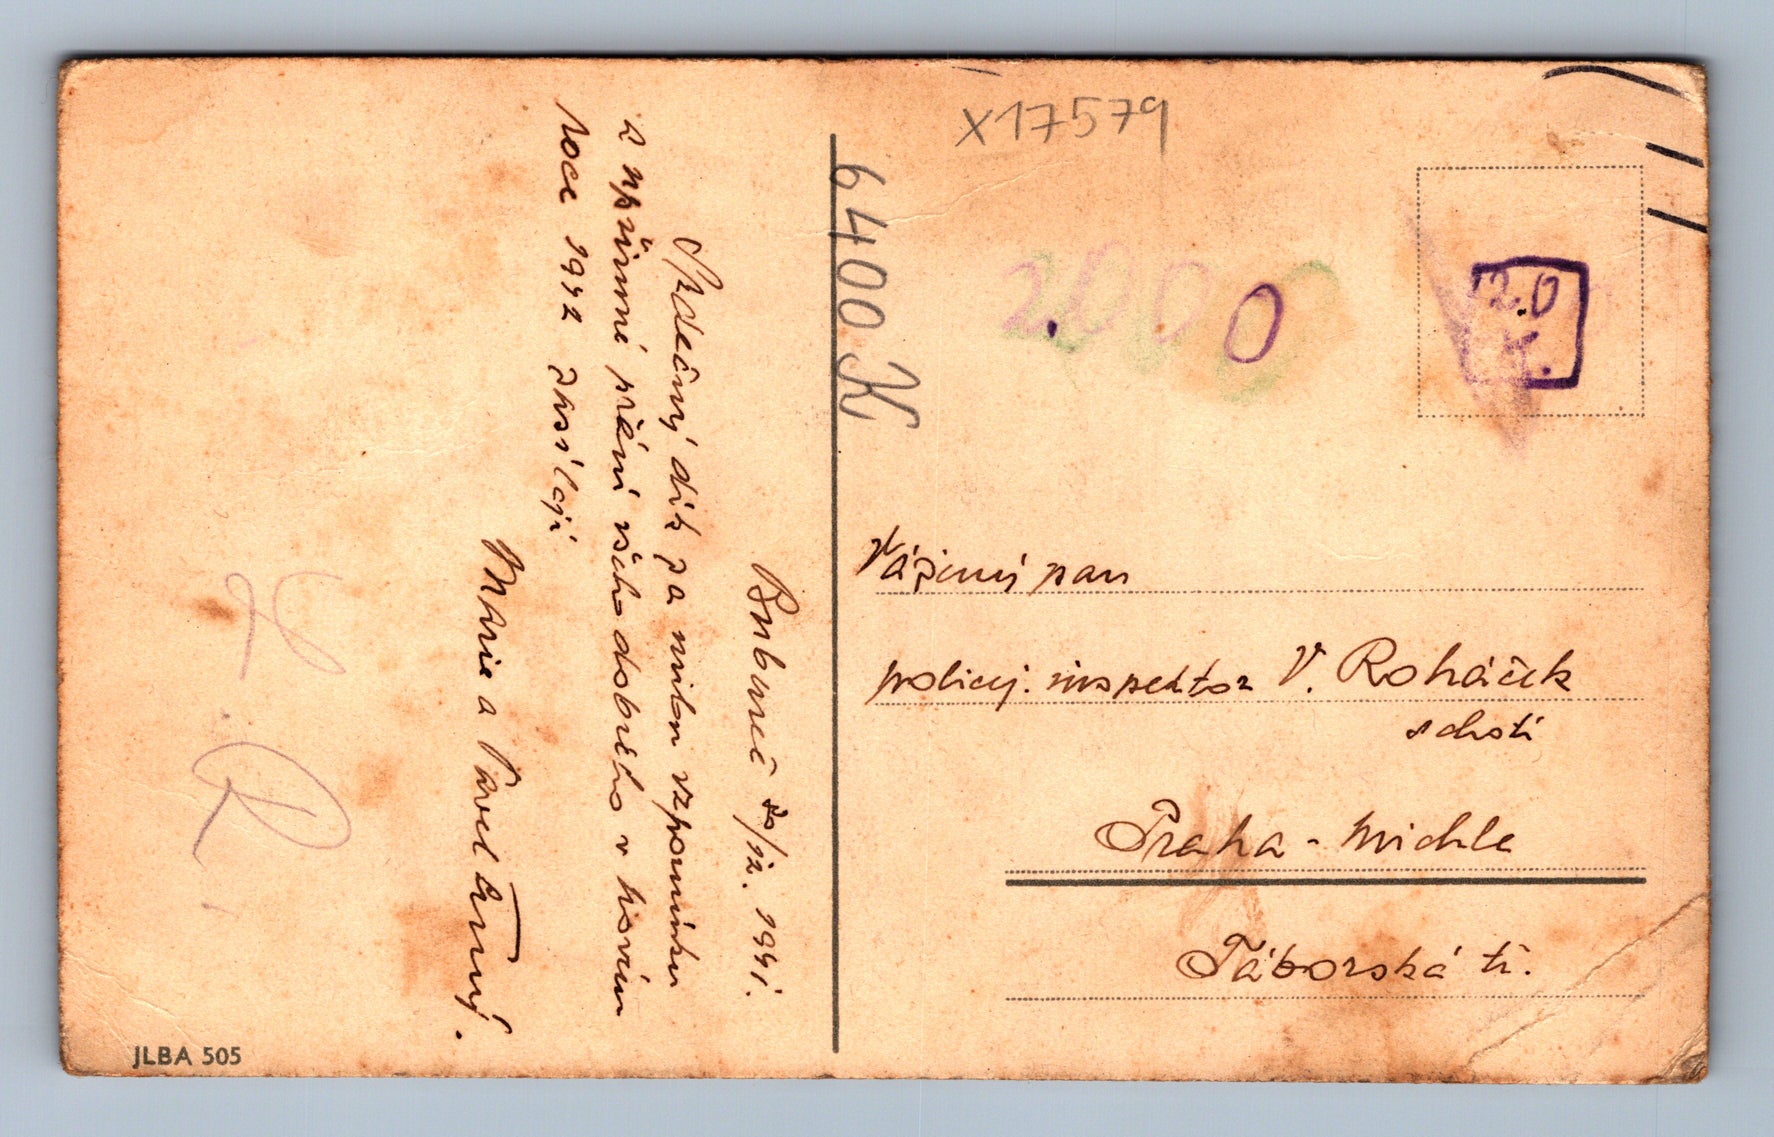 Bubeneč 30/12. 1941.
Srdečný dík za milou vzpomínku
a upřímné přání všeho dobrého v novém
roce 1942 zasílají
Marie a Pavel
x17579
6400 K
2000
2.0
Vážený pan
policej. inspektor V. Roháček
s chotí
Praha - Michle
Táborská tř.
R.
JLBA 505